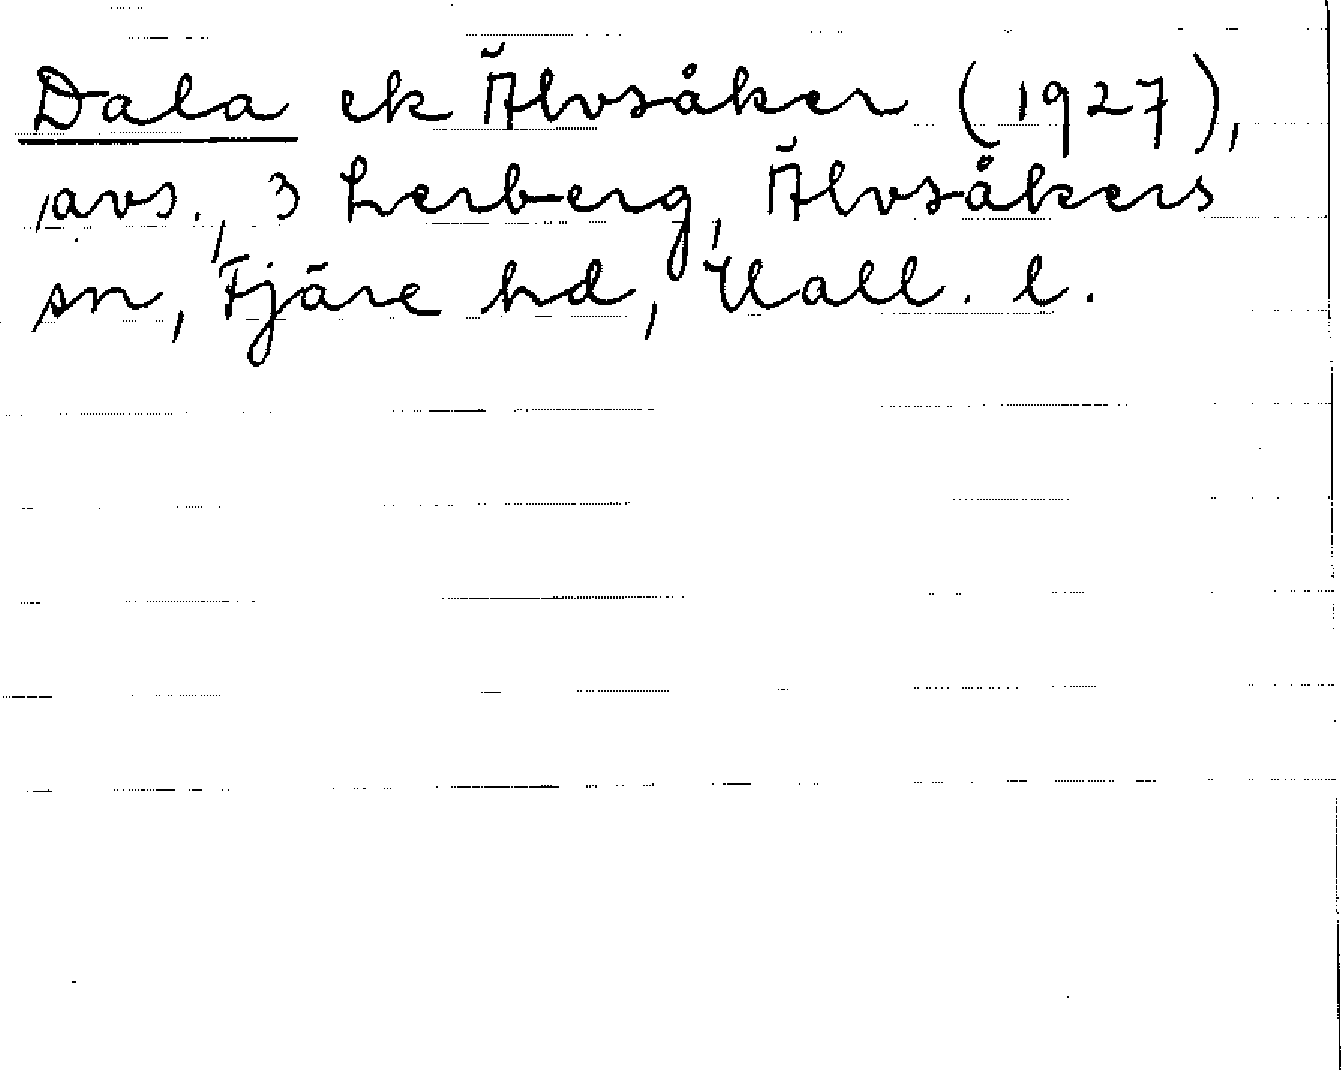 Dala ek Älvsåker (1927),
avs., 3 Lerberg, Älvsåkers
sn, Fjäre hd, Hall. l.